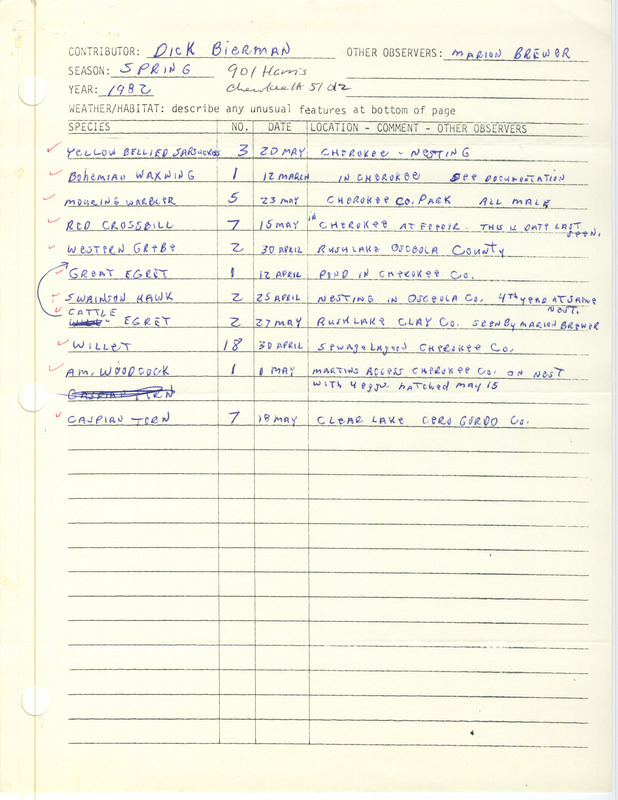 CONTRIBUTOR: DICK BIERMAN OTHER OBSERVERS: MARION BREWER
SEASON: SPRING 901 Harris
YEAR: 1982 Cherokee IA 51012
WEATHER/HABITAT: describe any unusual features at bottom of page
SPECIES NO. DATE LOCATION - COMMENT - OTHER OBSERVERS
YELLOW BELLIED SAPSUCKERS 3 20 MAY CHEROKEE - NESTING
BOHEMIAN WAXWING 1 12 MARCH IN CHEROKEE SEE DOCUMENTATION
MOURING WARBLER 5 23 MAY CHEROKEE CO. PARK ALL MALE
RED CROSSBILL 7 15 MAY in CHEROKEE AT FEEDER. THIS IS DATE LAST SEEN.
WESTERN GREBE 2 30 APRIL RUSH LAKE OSCEOLA COUNTY
GREAT EGRET 1 12 APRIL POND IN CHEROKEE CO.
SWAINSON HAWK 2 25 APRIL NESTING IN OSCEOLA CO. 4TH YEAR AT SAME NEST.
CATTLE
EGRET 2 27 MAY RUSH LAKE CLAY CO. SEEN BY MARION BREWER
WILLET 18 30 APRIL SEWAGE LAGOON CHEROKEE CO.
AM. WOODCOCK 1 MAY MARTINS ACCESS CHEROKEE CO. ON NEST
WITH 4 eggs. HATCHED MAY 15
CASPIAN TERN
CASPIAN TERN 7 18 MAY CLEAR LAKE CERO GORDO CO.